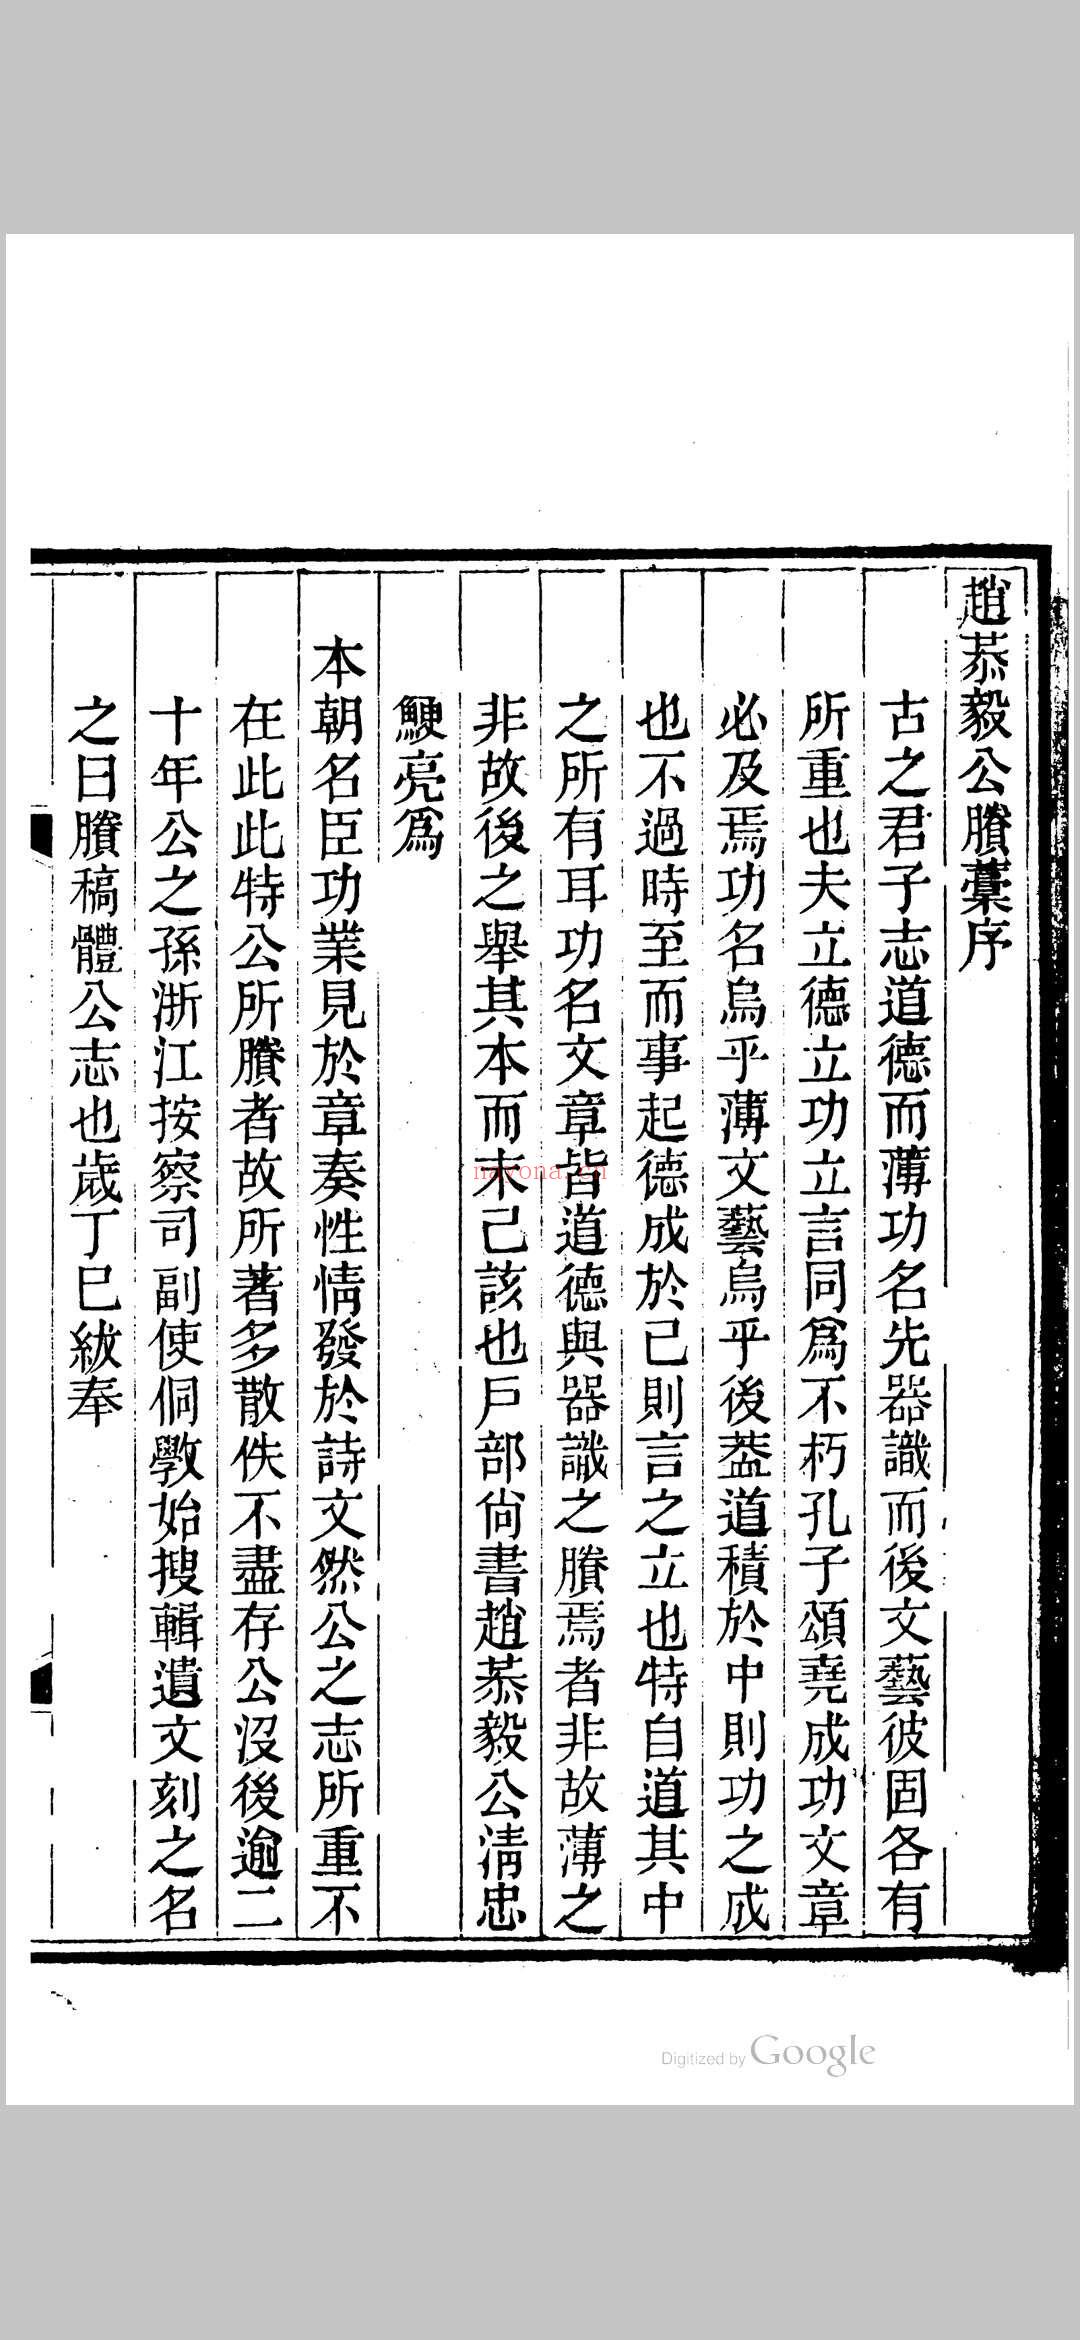 趙恭毅公賸藁序
古之君子志道德而薄功名先器識而後文藝彼固各有
所重也夫立德立功立言同爲不朽孔子頌堯成功文章
必及焉功名烏乎薄文藝烏乎後葢道積於中則功之成
也不過時至而事起德成於己則言之立也特自道其中
之所有耳功名文章皆道德與器識之賸焉者非故薄之
非故後之舉其本而末已該也戶部尙書趙恭毅公淸忠
鯁亮爲
本朝名臣功業見於章奏性情發於詩文然公之志所重不
在此此特公所賸者故所著多散佚不盡存公沒後逾二
十年公之孫浙江按察司副使侗斆始搜輯遺文刻之名
之曰賸稿體公志也歲丁巳紱奉
nayona.cn
Digitized by Google